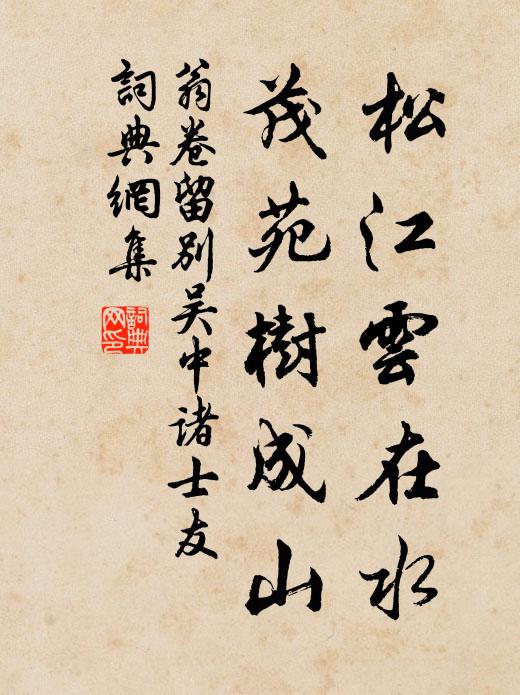 松江雲在水
茂苑樹成山
翁卷留別吴中诸士友
詞典網集
詞典網印